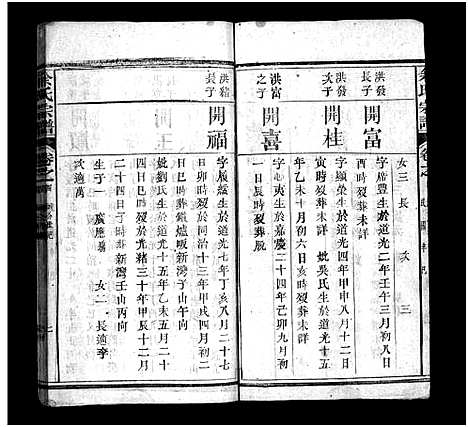 余氏宗譜
卷之
女三 長 次 三
洪發長子
開富
字席豐生於道光二年壬寅三月初八日
酉時歿葬未詳
洪發次子
開桂
字顯榮生於道光四年甲申八月十二日
寅時歿葬未詳 妣吳氏生於道光十五
年乙未十月初六日亥時歿葬未詳
洪富之子
開喜
字心夷生於嘉慶二十四年己卯九月初
一日辰時歿葬脫
洪緒長子
開福
字履綏生於道光七年丁亥八月二十七
日卯時歿於同治十三年甲戌四月初二
日巳時葬鑼爐畈新灣子山午向
妣劉氏生於道光十五年乙未五月二十
四日巳時歿於光緒三十年甲辰十二月
二十四日子時葬新灣壬山丙向
生子一 女二 長適李
次適萬
余氏宗譜
卷之